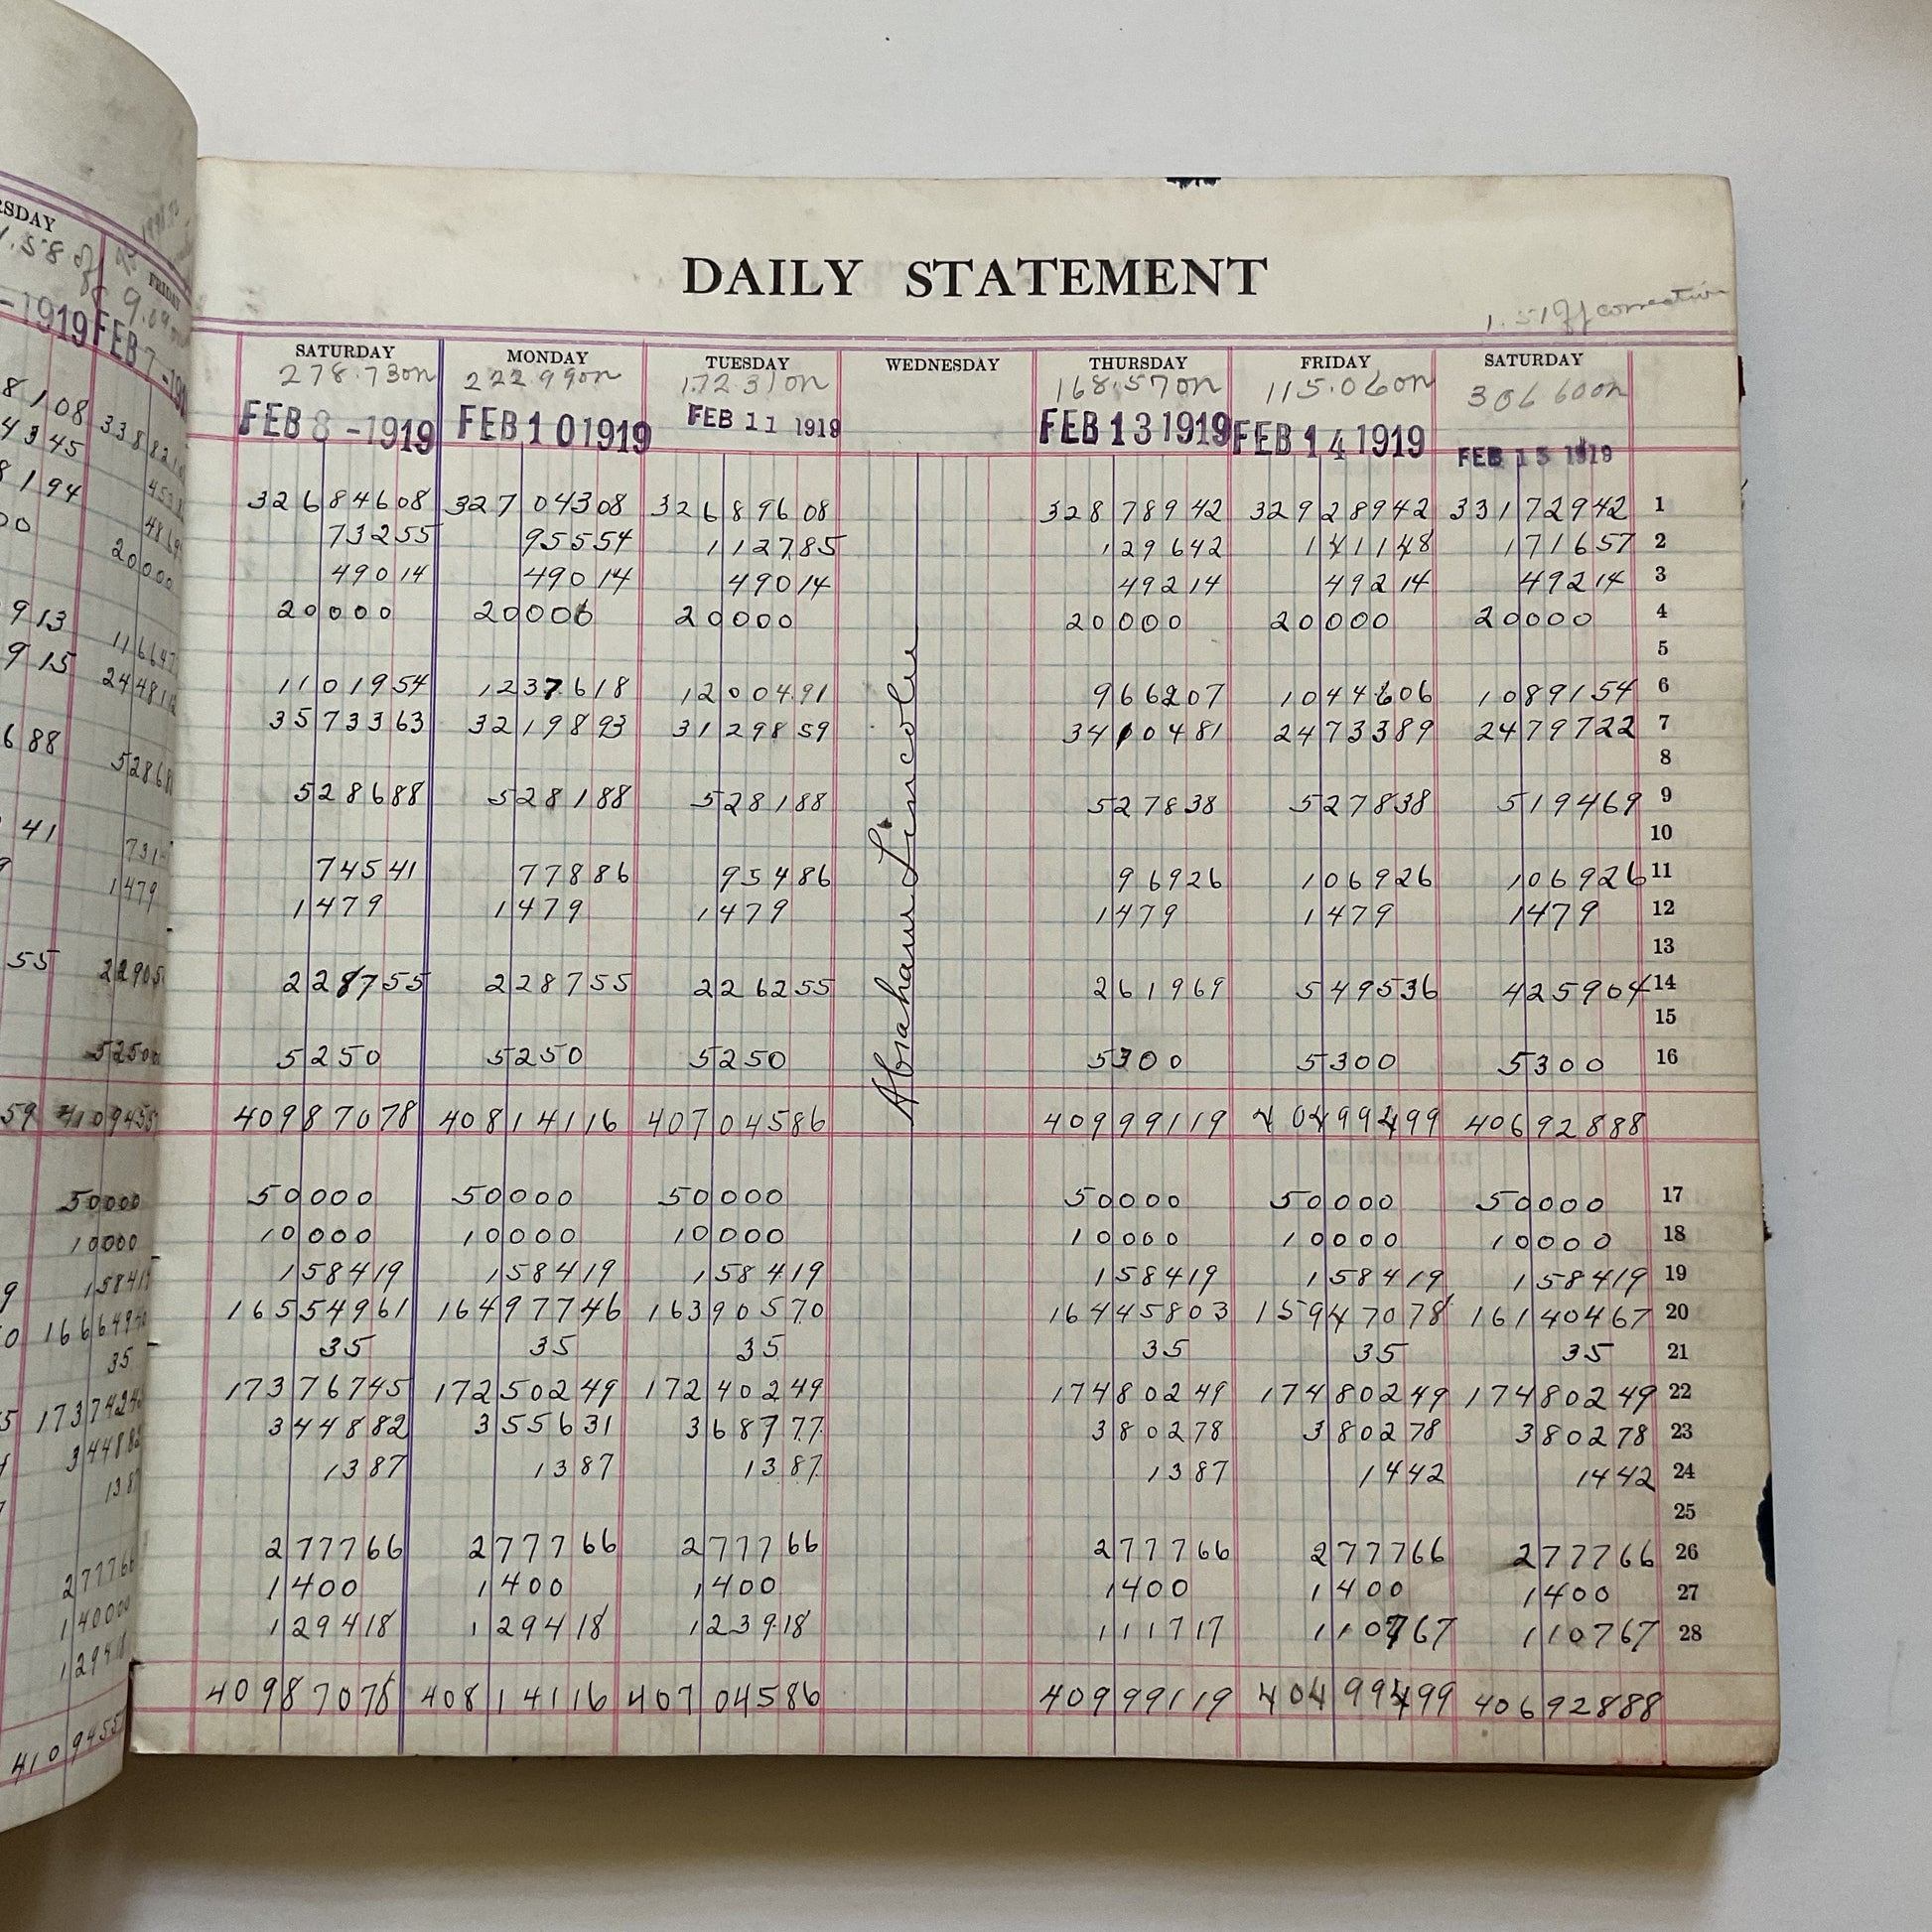 DAILY STATEMENT
1.51 off correction
SATURDAY MONDAY TUESDAY WEDNESDAY THURSDAY FRIDAY SATURDAY
278.73on 222.99on 172.31on 168.57on 115.06on 306 60on
FEB 8 -1919 FEB 10 1919 FEB 11 1919 FEB 13 1919 FEB 14 1919 FEB 15 1919
Abraham Lincoln
32684608 32704308 32689608 32878942 32928942 33172942 1
73255 95554 112785 129642 141148 171657 2
49014 49014 49014 49214 49214 49214 3
20000 20000 20000 20000 20000 20000 4
5
1101954 1237618 1200491 966207 1044606 1089154 6
3573363 3219893 3129859 3410481 2473389 2479722 7
8
528688 528188 528188 527838 527838 519469 9
10
74541 77886 95486 96926 106926 106926 11
1479 1479 1479 1479 1479 1479 12
13
228755 228755 226255 261969 549536 425904 14
15
5250 5250 5250 5300 5300 5300 16
40987078 40814116 40704586 40999119 40499499 40692888
50000 50000 50000 50000 50000 50000 17
10000 10000 10000 10000 10000 10000 18
158419 158419 158419 158419 158419 158419 19
16554961 16497746 16390570 16445803 15947078 16140467 20
35 35 35 35 35 35 21
17376745 17250249 17240249 17480249 17480249 17480249 22
344882 355631 368777 380278 380278 380278 23
1387 1387 1387 1387 1442 1442 24
25
277766 277766 277766 277766 277766 277766 26
1400 1400 1400 1400 1400 1400 27
129418 129418 123918 111717 110767 110767 28
40987078 40814116 40704586 40999119 40499499 40692888